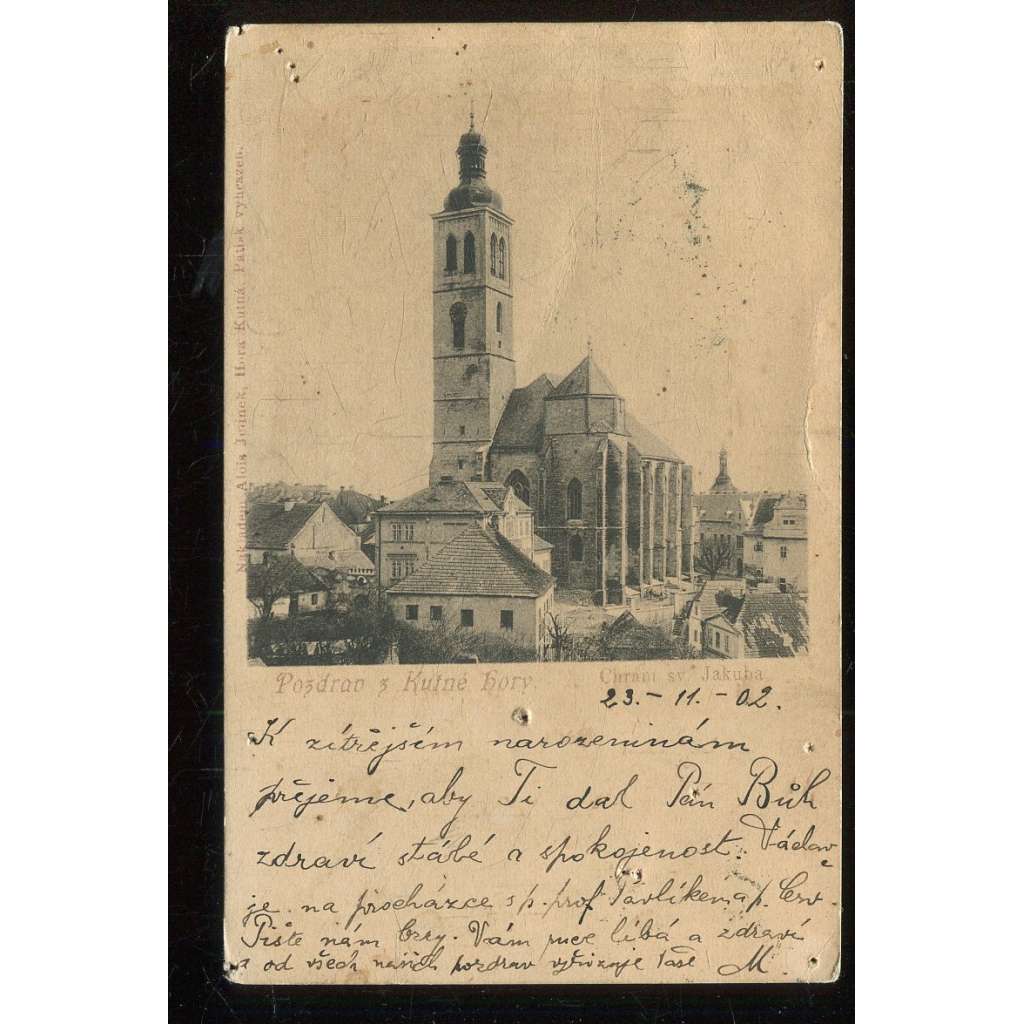 Nákladem Alois Jelínek, Hora Kutná. Patisk vyhrazen.
Pozdrav z Kutné hory.
Chrám sv. Jakuba
23. - 11. - 02.
K zítřejším narozeninám
přejeme, aby Ti dal Pán Bůh
zdraví stálé a spokojenost. Václav
je na procházce s p. prof. Pavlíkem a p.
Pište nám brzy. Vám ruce líbá a zdraví
a od všech našich pozdrav vyřizuje Vaše M.